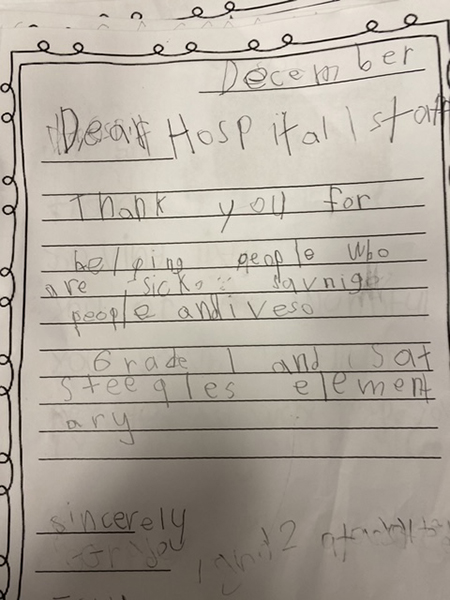 December
Dear Hospital staff
Thank you for
helping people who
are sick savnig
people and ives
Grade 1 and at
Steeqles element
ary
sincerely